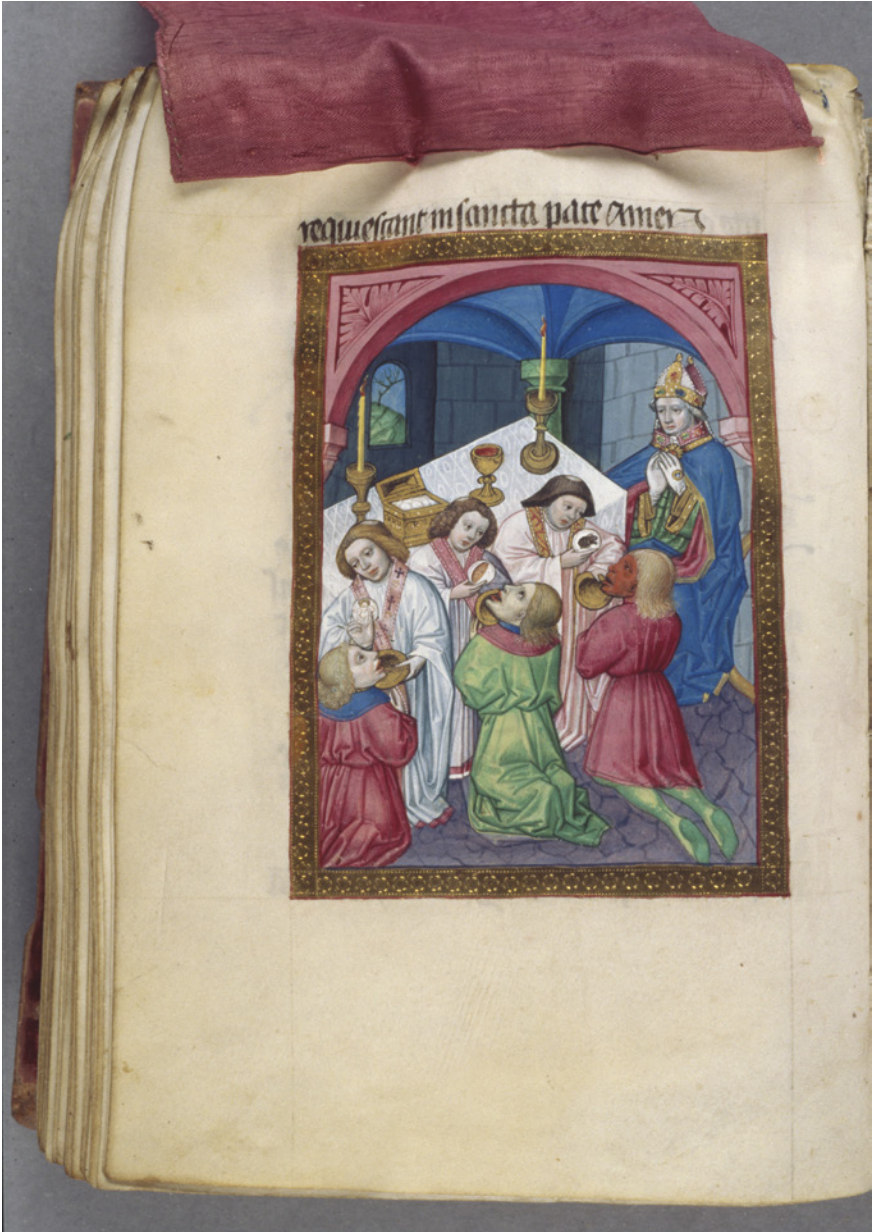 requiescant in sancta pace Amen